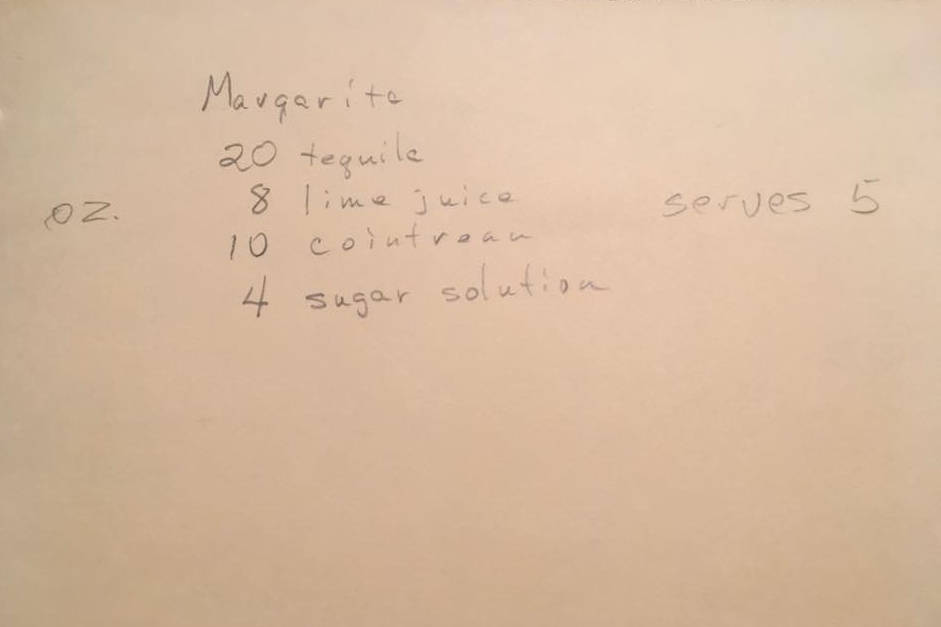 Margarita
20 tequila
oz. 8 lime juice serves 5
10 cointreau
4 sugar solution